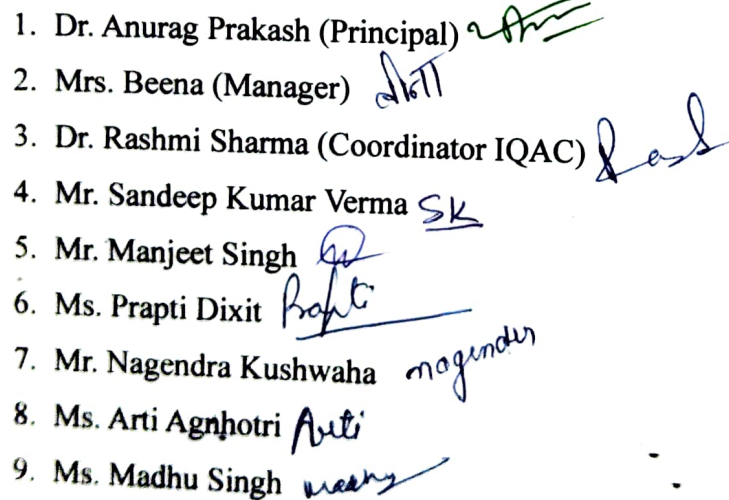 1. Dr. Anurag Prakash (Principal)
2. Mrs. Beena (Manager) बीना
3. Dr. Rashmi Sharma (Coordinator IQAC)
4. Mr. Sandeep Kumar Verma SK
5. Mr. Manjeet Singh
6. Ms. Prapti Dixit Prapti
7. Mr. Nagendra Kushwaha
8. Ms. Arti Agnhotri Arti
9. Ms. Madhu Singh